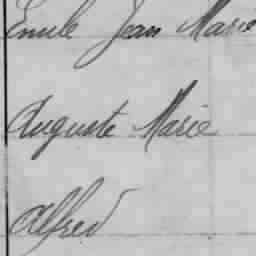 Emile Jean Marie
Auguste Marie
Alfred